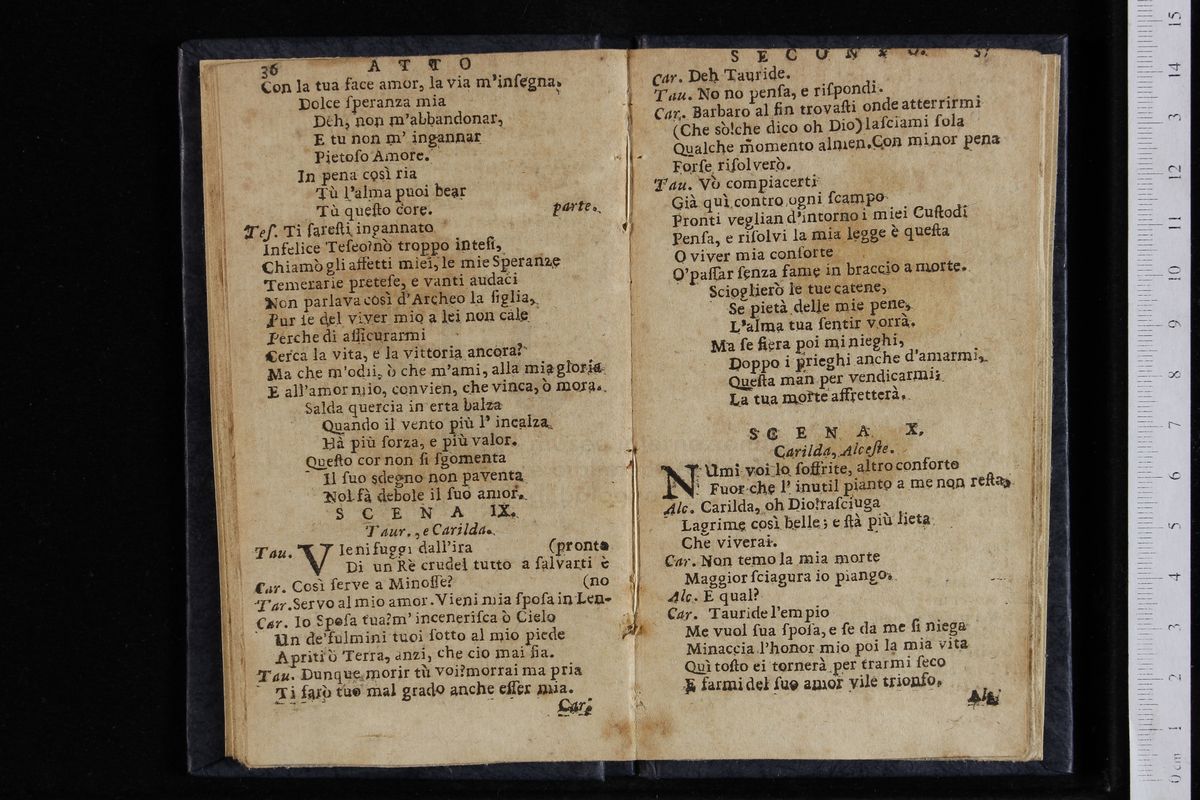 36 ATTO
Con la tua face amor, la via m'inſegna,
Dolce ſperanza mia
Deh, non m'abbandonar,
E tu non m' ingannar
Pietoſo Amore.
In pena così ria
Tù l'alma puoi bear
Tù queſto core. parte.
Teſ. Ti fareſti ingannato
Infelice Teſeo!nò troppo inteſi,
Chiamò gli affetti miei, le mie Speranze
Temerarie preteſe, e vanti audaci
Non parlava così d'Archeo la figlia,
Pur ſe del viver mio a lei non cale
Perche di aſſicurarmi
Cerca la vita, e la vittoria ancora?
Ma che m'odii, ò che m'ami, alla mia gloria
E all'amor mio, convien, che vinca, ò mora.
Salda quercia in erta balza
Quando il vento più l' incalza
Hà più forza, e più valor.
Queſto cor non ſi ſgomenta
Il ſuo sdegno non paventa
Nol fà debole il ſuo amor.
SCENA IX.
Taur., e Carilda.
Tau. Vieni fuggi dall'ira (pronto
Di un Rè crudel tutto a ſalvarti è
Car. Così ſerve a Minoſſe? (no
Tar. Servo al mio amor. Vieni mia ſpoſa in Len-
Car. Io Spoſa tua?m' inceneriſca ò Cielo
Un de'fulmini tuoi ſotto al mio piede
Apriti ò Terra, anzi, che cio mai ſia.
Tau. Dunque morir tù voi?morrai ma pria
Ti farò tuo mal grado anche eſſer mia.
Car.
SECONDO. 37
Car. Deh Tauride.
Tau. No no penſa, e riſpondi.
Car. Barbaro al fin trovaſti onde atterrirmi
(Che sò!che dico oh Dio) laſciami ſola
Qualche momento almen. Con minor pena
Forſe riſolverò.
Tau. Vò compiacerti
Già quì contro ogni ſcampo
Pronti veglian d'intorno i miei Cuſtodi
Penſa, e riſolvi la mia legge è queſta
O viver mia conſorte
O'paſſar ſenza fame in braccio a morte.
Scioglierò le tue catene,
Se pietà delle mie pene,
L'alma tua ſentir vorrà.
Ma ſe fiera poi mi nieghi,
Doppo i prieghi anche d'amarmi,
Queſta man per vendicarmi;
La tua morte affretterà.
SCENA X.
Carilda, Alceſte.
NUmi voi lo ſoffrite, altro conforto
Fuor che l' inutil pianto a me non reſta,
Alc. Carilda, oh Dio!raſciuga
Lagrime così belle; e ſtà più lieta
Che viverai.
Car. Non temo la mia morte
Maggior ſciagura io piango.
Alc. E qual?
Car. Tauride l'empio
Me vuol ſua ſpoſa, e ſe da me ſi niega
Minaccia l'honor mio poi la mia vita
Quì toſto ei tornerà per trarmi ſeco
E farmi del ſuo amor vile trionfo.
Alc.
0 cm 1 2 3 4 5 6 7 8 9 10 11 12 13 14 15